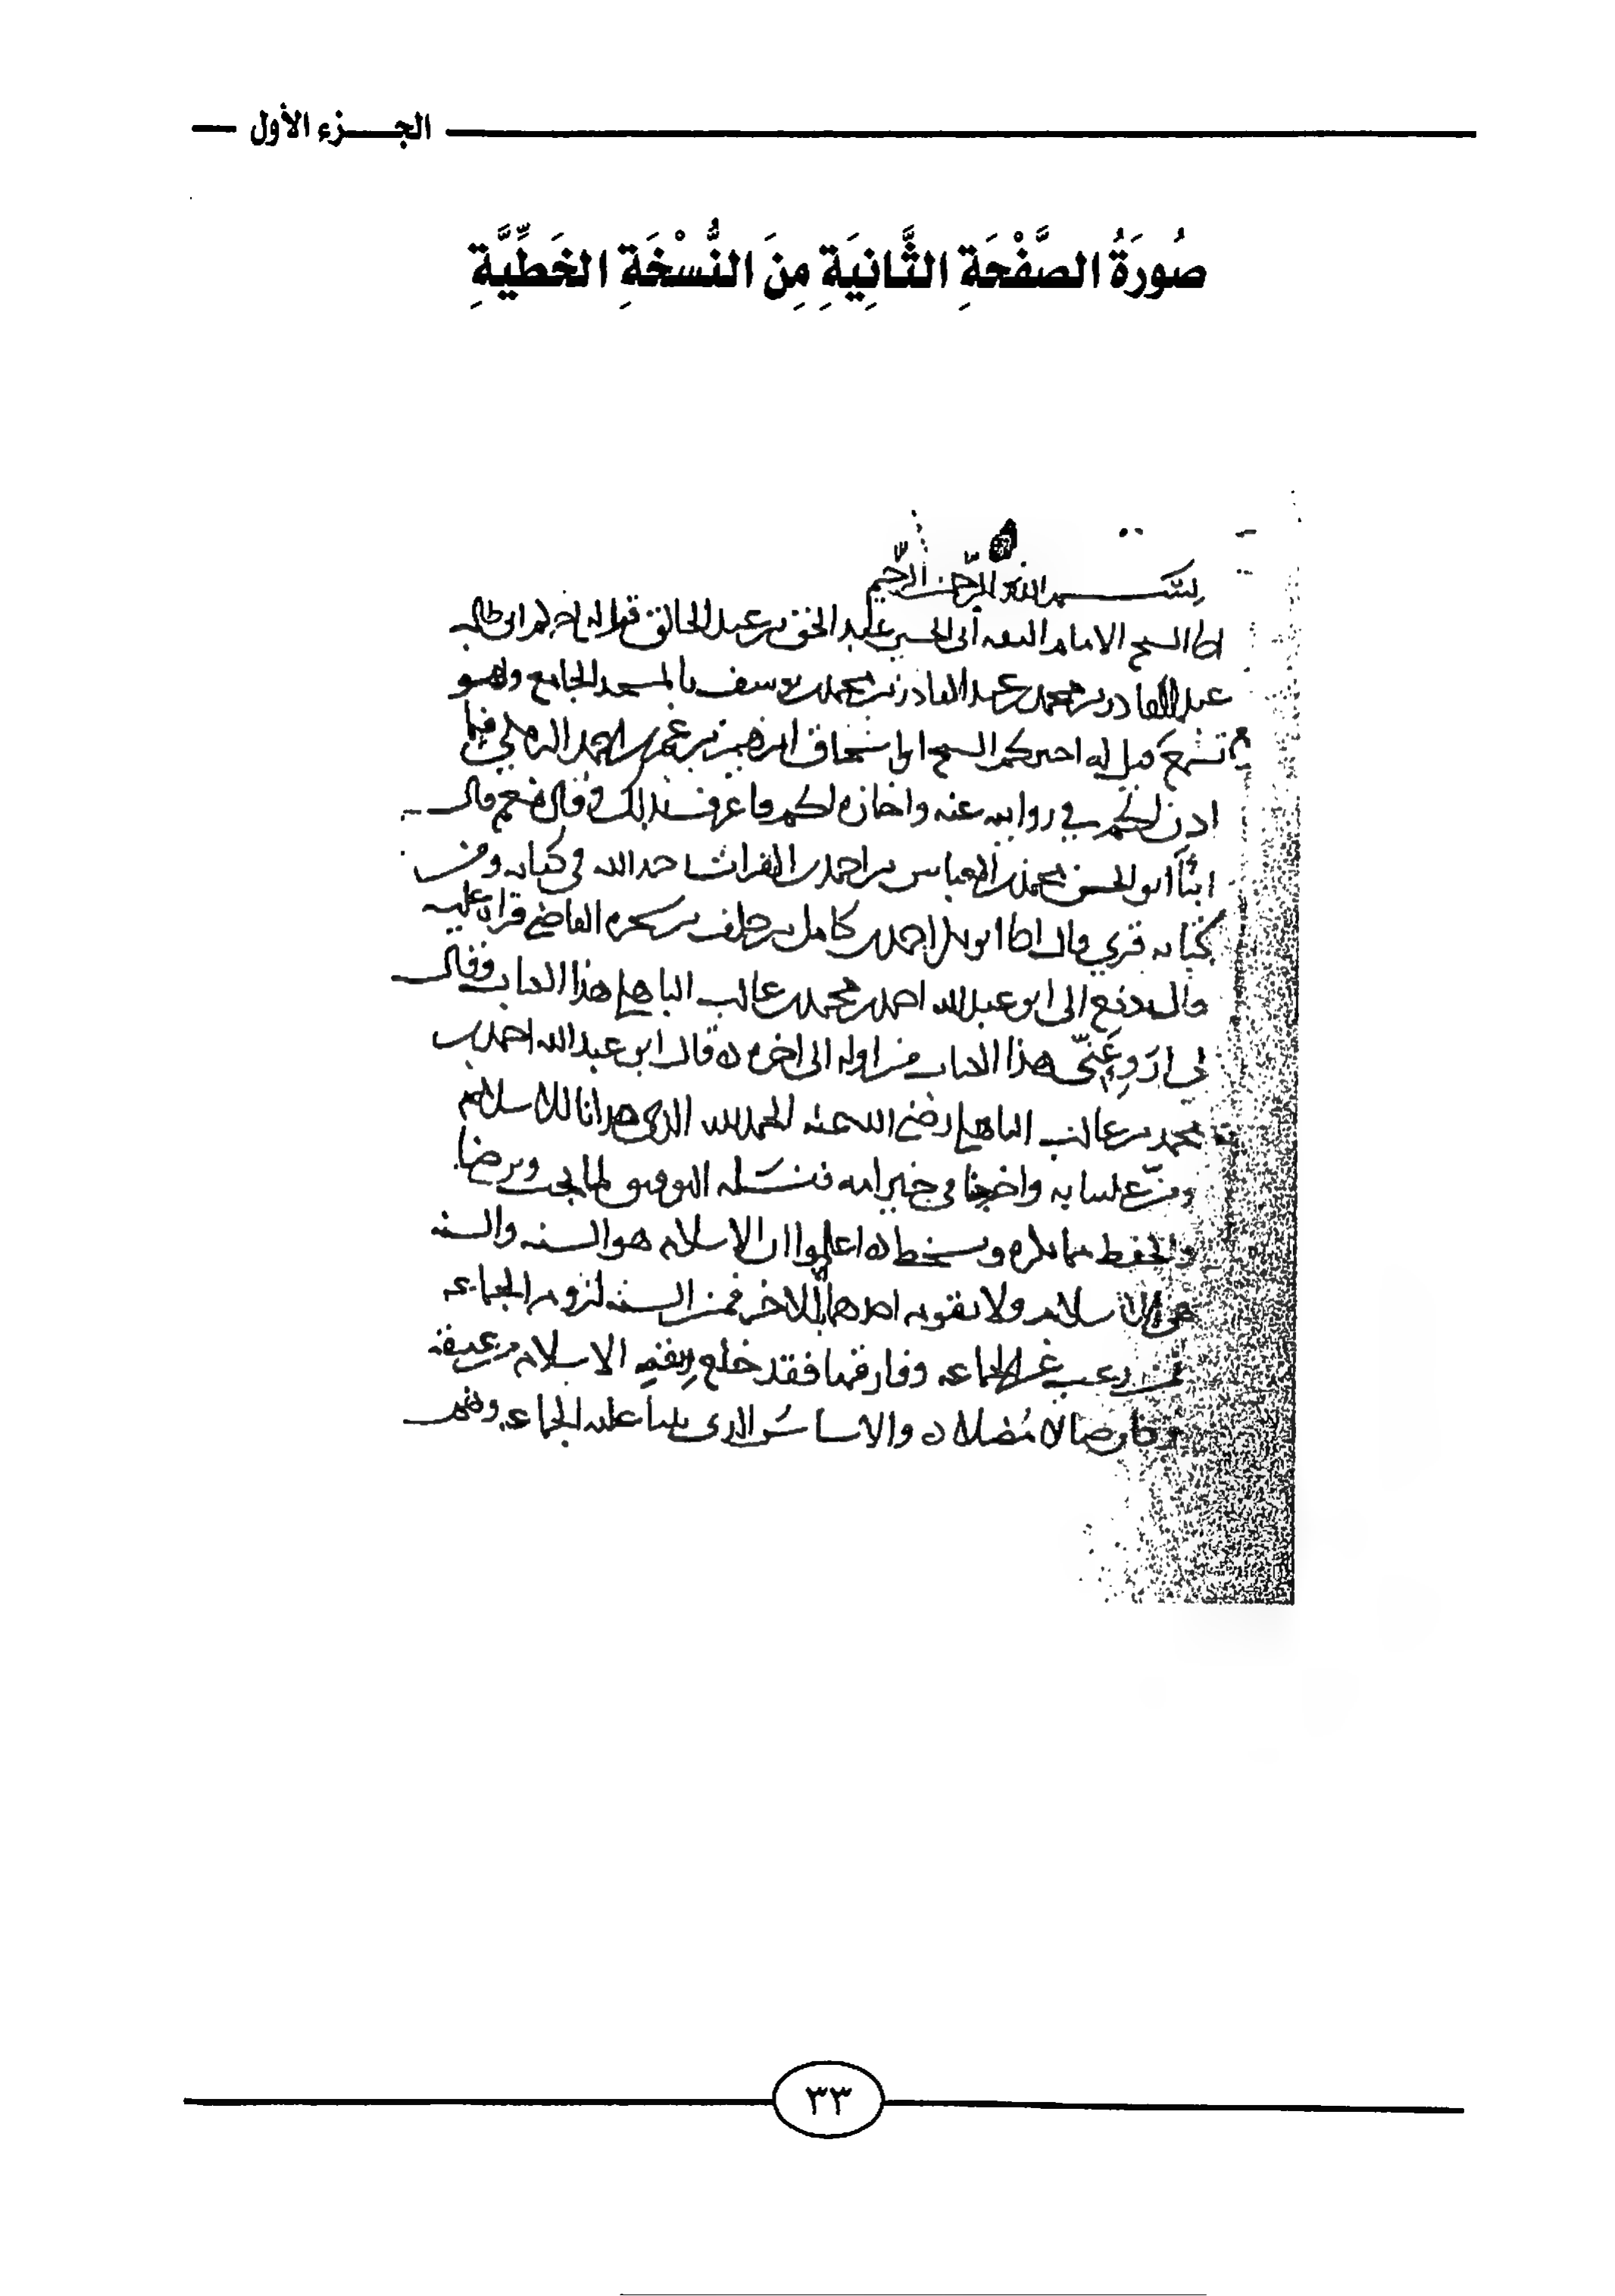 الجزء الأول
صُورَةُ الصَّفْحَةِ الثَّانِيَةِ مِنَ النُّسْخَةِ الخَطِّيَّةِ
بسم الله الرحمن الرحيم
الامام أبي الحسين عبد الحق بن عبد الخالق
عبد القادر بن محمد بن عبد القادر بن محمد بن يوسف بالمسجد الجامع وهو
تسمع قيل له اخبركم الشيخ ابو اسحاق ابرهيم بن عمر بن احمد البرمكي فيما
اذن لكم في روايته عنه واجازه لكم فاعرف بذلك وقال نعم قال
انبأ ابو الحسن محمد بن العباس بن احمد بن الفرات رحمه الله في كتابه ومن
كتابه قري قال ابو بكر احمد بن كامل بن خلف بن شجره القاضي قراه عليه
قال دفع الى ابو عبد الله احمد بن محمد بن غالب الباهلي هذا الكتاب وقال
لي ارو عني هذا الكتاب من اوله الى اخره قال ابو عبد الله احمد بن
محمد بن غالب الباهلي رضي الله عنه الحمد لله الذي هدانا للاسلام
ومن علينا به واخرجنا في خير امه فنسله التوفيق لما يحب ويرضا
والحفظ مما يكره ويسخط اعلموا ان الاسلام هو السنه والسنه
هي الاسلام ولا يقوم احدهما الا بالاخر فمن السنه لزوم الجماعه
فمن رغب غير الجماعه وفارقها فقد خلع ربقه الاسلام من عنقه
وكان ضالا مضلا والاساس الذي بينا عليه الجماعه وهم
٣٣